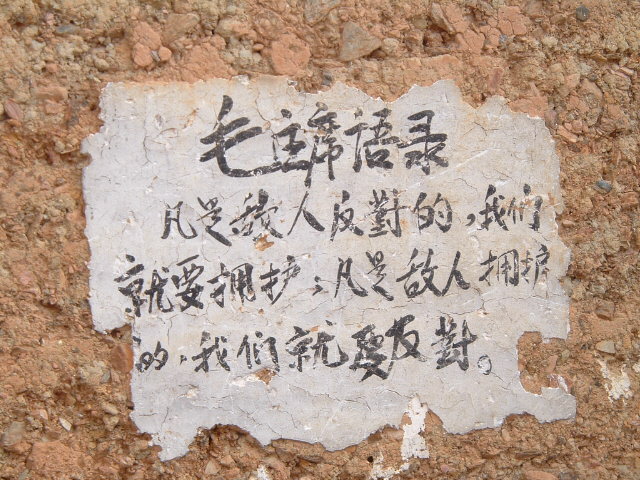 毛主席语录
凡是敌人反對的,我们
就要拥护;凡是敌人拥护
的,我们就要反對。